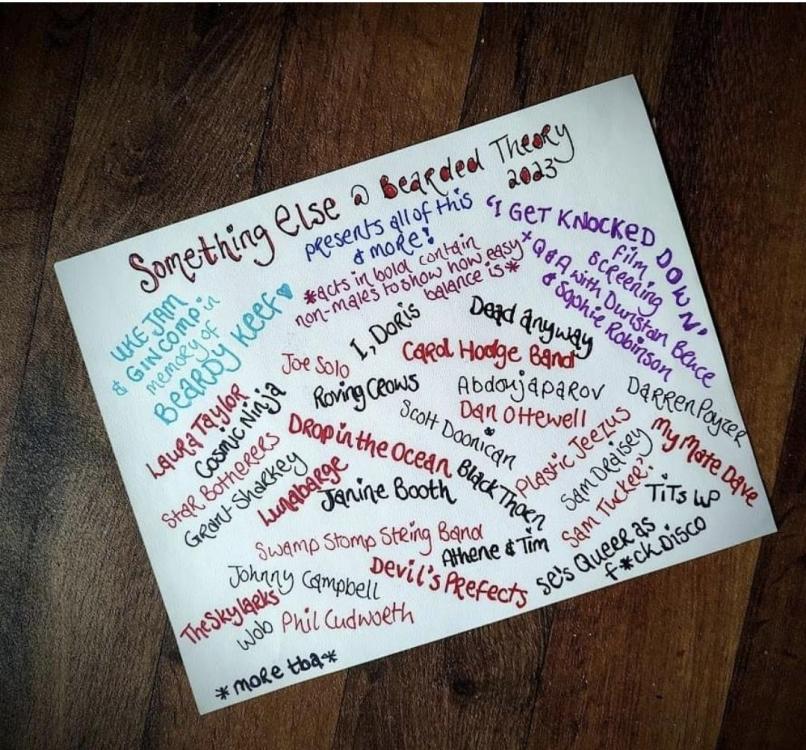 Something Else @ Bearded Theory
2023
presents all of this
& more!
*acts in bold contain
non-males to show how easy
balance is*
'I GET KNOCKED DOWN'
film
screening
+ Q&A with Dunstan Bruce
& Sophie Robinson
UKE JAM
& GIN COMP in
memory of
BEARDY KEEF
Joe Solo
I, Doris
Dead anyway
Carol Hodge Band
Roving Crows
Abdoujaparov
Darren Poyzer
Laura Taylor
Cosmic Ninja
Scott Doonican
Dan Ottewell
Star Botherers
Drop in the Ocean
Plastic Jeezus
My Mate Dave
Grant Sharkey
Lunabarge
Black Thorn
Sam Deaisey
Janine Booth
Sam Tucker?
TiTs UP
Swamp Stomp String Band
Athene & Tim
SE's Queer as
f*ck Disco
Johnny Campbell
Devil's Prefects
The Skylarks
Wob
Phil Cudworth
*more tba*